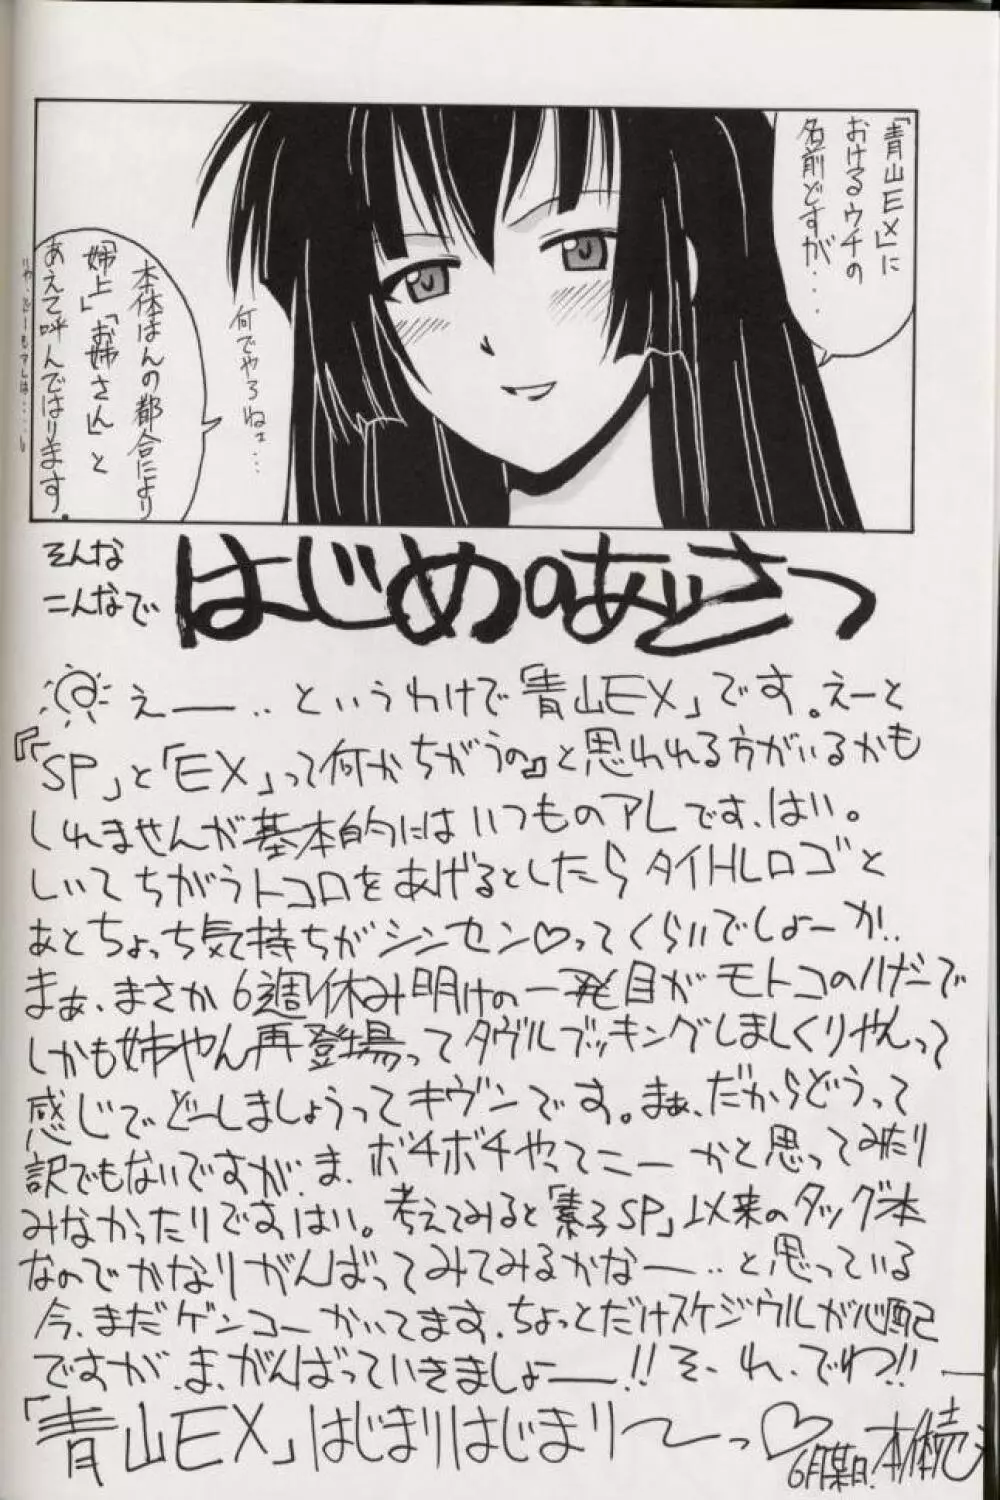 「青山EX」に
おけるウチの
名前どすが・・・
何でやろねェ・・・
本体はんの都合により
「姉上」「お姉さん」と
あえて呼んではります。
そんな
こんなで
はじめのあいさつ
えー‥というわけで「青山EX」です。えーと
『「SP」と「EX」って何がちがうの』と思われる方がいるかも
しれませんが基本的にはいつものアレです、はい。
しいてちがうトコロをあげるとしたらタイトルロゴと
あとちょっち気持ちがシンセン♡ってくらいでしょーか‥
まぁ、まさか6週休み明けの一発目がモトコのハダーで
しかも姉やん再登場ってダヴルブッキングしましくりやんって
感じで、どーしましょうってキヴンです。まぁ、だからどうって
訳でもないですが、ま、ボチボチやってこーかと思ってみたり
みなかったりですはい。考えてみると「素子SP」以来のタッグ本
なのでかなりがんばってみてみるかなー‥と思っている
今、まだゲンコーかいてます、ちょっとだけスケジウルが心配
ですが、ま、がんばっていきましょー!!それ、でわ!!
「青山EX」はじまりはじまり〜っ♡
6月某日、本体続